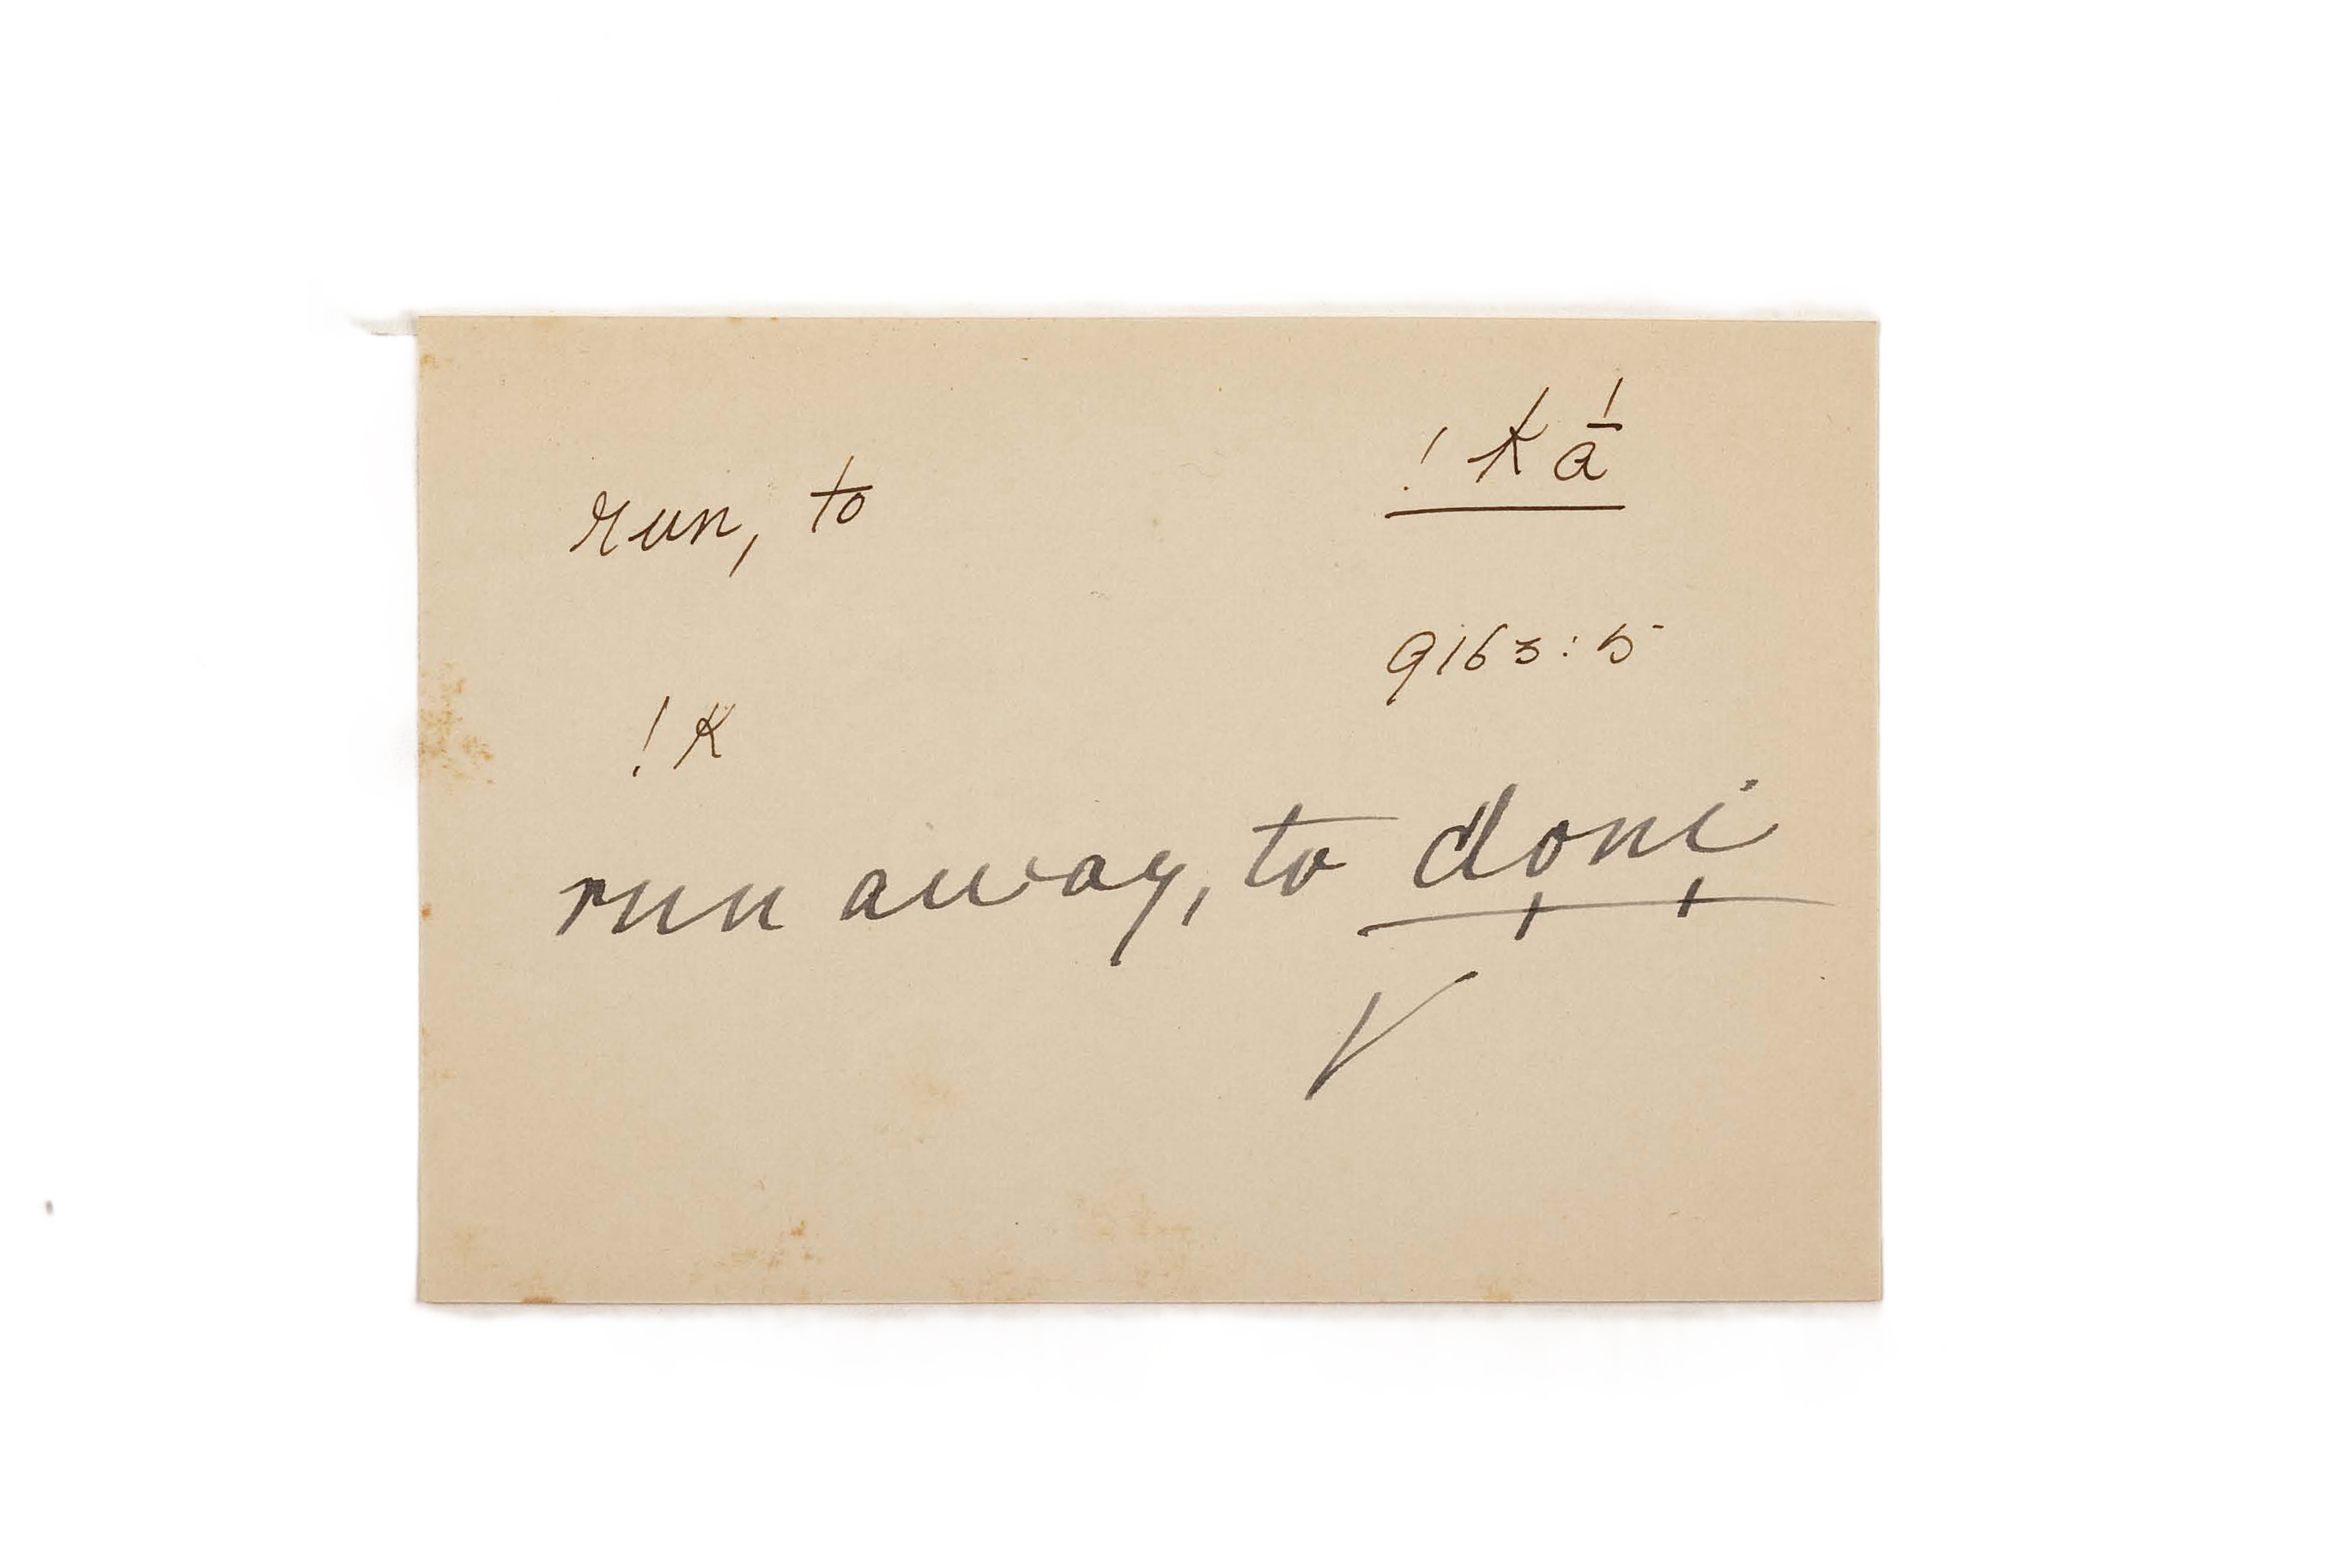 run, to ! kā́
9163:5
! K
run away, to do̩ni̩
V